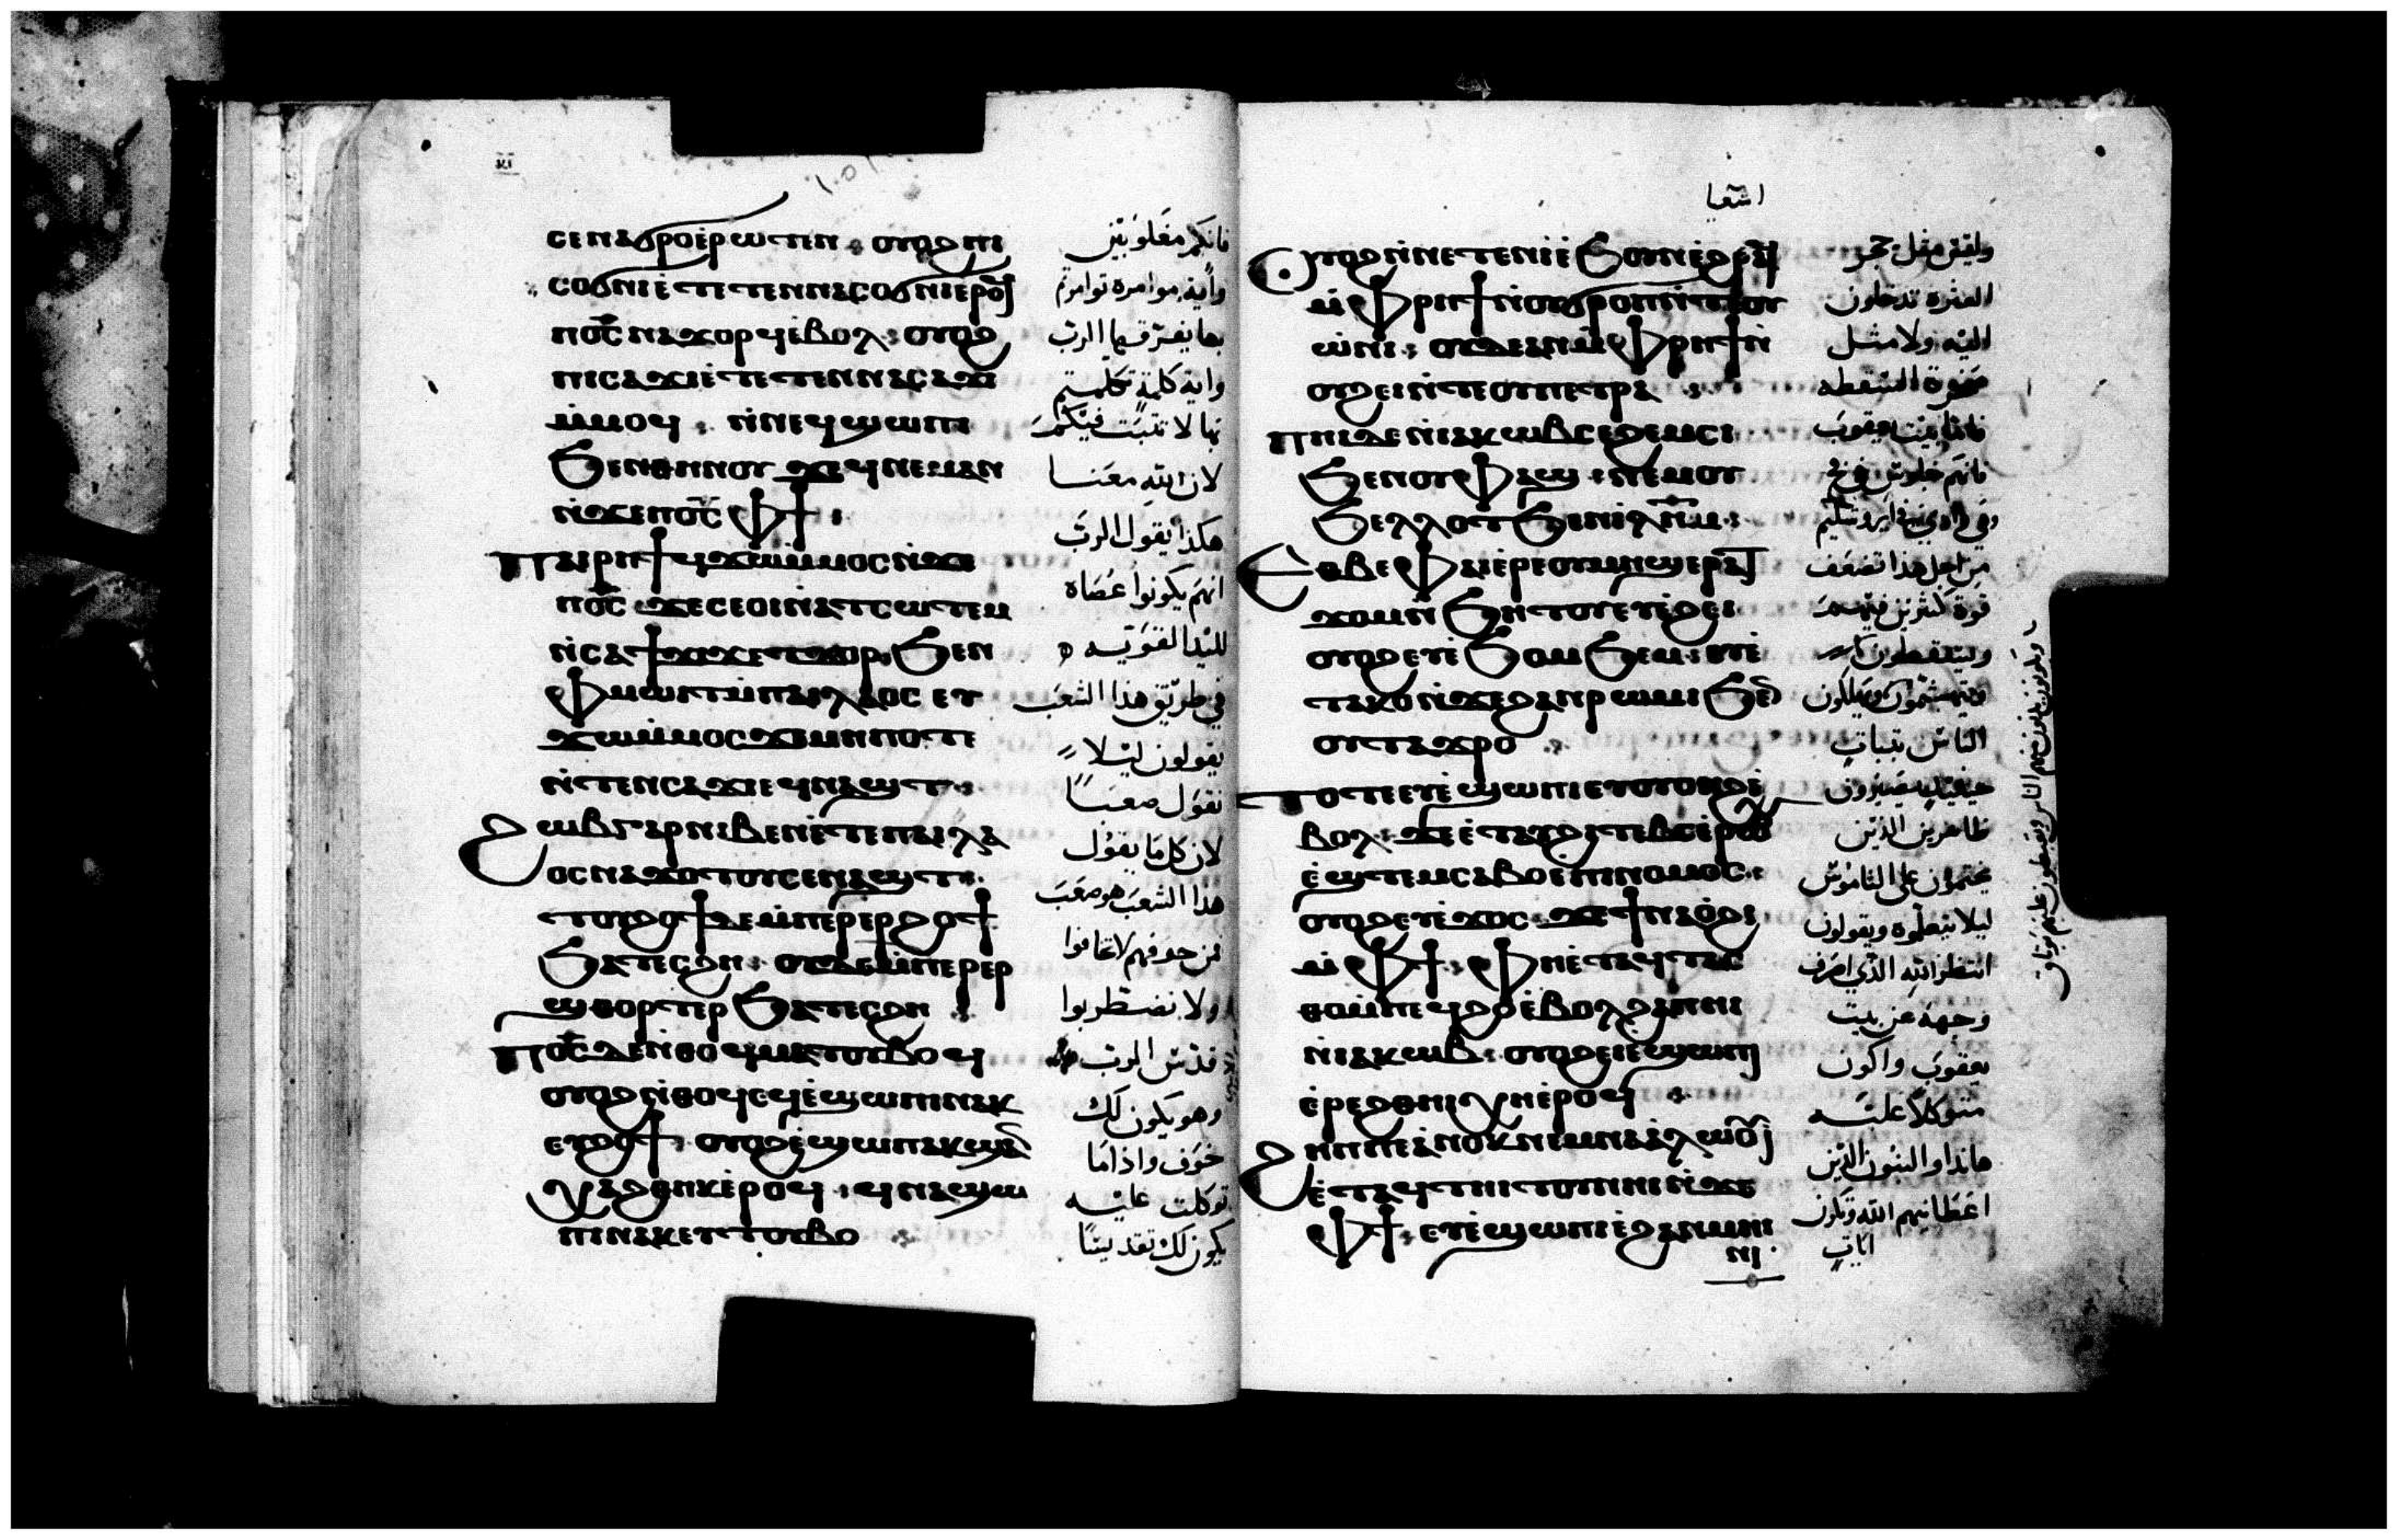 ⲥⲉⲛⲁϭⲣⲟ ⲉⲣⲱⲧⲉⲛ : ⲟⲩⲟϩ ⲡⲓ
ⲥⲟϭⲛⲓ ⲉⲧⲉⲧⲉⲛⲛⲁⲥⲟϭⲛⲓ ⲉⲣⲟϥ
ⲡⲟ̅ⲥ̅ ⲛⲁϫⲟⲣϥ ⲉⲃⲟⲗ : ⲟⲩⲟϩ
ⲡⲓⲥⲁϫⲓ ⲉⲧⲉⲧⲉⲛⲛⲁⲥⲁϫⲓ
ⲙ̀ⲙⲟϥ : ⲛ̀ⲛⲉϥϣⲱⲡⲓ
ϧⲉⲛ ⲑⲏⲛⲟⲩ ϫⲉ ϥⲛⲉⲙⲁⲛ
ⲛ̀ϫⲉ ⲡⲟ̅ⲥ̅ ⲫϯ :
ⲡⲁⲓⲣⲏϯ ϥϫⲱ ⲙ̀ⲙⲟⲥ ⲛ̀ϫⲉ
ⲡⲟ̅ⲥ̅ ϫⲉ ⲥⲉⲟⲓ ⲛ̀ⲁⲧⲥⲱⲧⲉⲙ
ⲛ̀ⲥⲁ ϯϫⲓϫ ⲉⲧϫⲟⲣ ϧⲉⲛ
ⲫⲙⲱⲓⲧ ⲙ̀ⲡⲁⲓⲗⲁⲟⲥ ⲉⲩ
ϫⲱ ⲙ̀ⲙⲟⲥ ϫⲉ ⲙⲏⲡⲟⲧⲉ
ⲛ̀ⲧⲉⲛⲥⲁϫⲓ ⲉϥⲛⲁϣⲧ :
ϩⲱⲃ ⲅⲁⲣ ⲛⲓⲃⲉⲛ ⲉ̀ⲧⲉ ⲡⲁⲓⲗⲁ
ⲟⲥ ⲛⲁϫⲟⲧⲟⲩ ⲥⲉⲛⲁϣⲧ :
ⲧⲟⲩϩⲟϯ ⲇⲉ ⲙ̀ⲡⲉⲣⲉⲣϩⲟϯ
ϧⲁⲧⲉⲥϩⲏ : ⲟⲩⲇⲉ ⲙ̀ⲡⲉⲣⲉⲣ
ϣⲑⲟⲣⲧⲉⲣ ϧⲁⲧⲉⲥϩⲏ :
ⲡⲟ̅ⲥ̅ ⲇⲉ ⲛ̀ⲑⲟϥ ⲙⲁⲧⲟⲩⲃⲟϥ
ⲟⲩⲟϩ ⲛ̀ⲑⲟϥ ⲉϥⲉ̀ϣⲱⲡⲓ ⲛⲁⲕ
ⲉⲩϩⲟϯ : ⲟⲩⲟϩ ⲉ̀ϣⲱⲡ ⲁⲕϣⲁ̅
ⲭⲁϩⲑⲏⲕ ⲉ̀ⲣⲟϥ : ϥⲛⲁϣⲱ
ⲡⲓ ⲛⲁⲕ ⲉⲩⲧⲟⲩⲃⲟ
فانكم مغلوبين
وأية موامرة توامرتم
بها يفرقها الرب
واية كلمة تكلمتم
بها لا تثبت فيكم
لان الله معنا
هكذا يقول الرب
انهم يكونوا عصاه
لليد القوية
في طريق هذا الشعب
يقولون ليلا
نقول صعبا
لان كل ما يقول
هذا الشعب هو صعب
من خوفهم لا تخافوا
ولا تضطربوا
قدس الرب
وهو يكون لك
خوف واذا ما
توكلت عليه
يكون لك تقديسا
اشعيا
ⲟⲩⲟϩ ⲛ̀ⲛⲉⲧⲉⲛⲓ̀ ⲉϧⲟⲩⲛ ⲉ̀ϩⲣⲁϥ
ⲙ̀ⲫⲣⲏϯ ⲛ̀ⲟⲩϭⲣⲟⲡ ⲛ̀ⲧⲉ ⲟⲩ
ⲱ̀ⲛⲓ : ⲟⲩⲇⲉ ⲙ̀ⲫⲣⲏϯ ⲛ̀
ⲟⲩϩⲉⲓ ⲛ̀ⲧⲉ ⲟⲩⲡⲉⲧⲣⲁ :
ⲡⲏⲓ ⲇⲉ ⲛ̀ⲓⲁⲕⲱⲃ ⲥⲉϩⲉⲙⲥⲓ
ϧⲉⲛ ⲟⲩⲫⲁϣ : ⲛⲉⲙ ⲟⲩ
ϧⲉⲗⲗⲟⲧ ϧⲉⲛ ⲓ̅ⲗ̅ⲏ̅ⲙ̅ :
ⲉⲑⲃⲉ ⲫⲁⲓ ⲉ̀ⲣⲉ ⲟⲩⲙⲏϣ ⲉⲣⲁⲧ
ϫⲟⲙ ⲛ̀ϧⲏⲧⲟⲩ ⲉⲩⲉ̀ϩⲉⲓ
ⲟⲩⲟϩ ⲉⲩⲉ̀ϧⲟⲙϧⲉⲙ : ⲉⲩⲉ̀
ⲧⲁⲕⲟ ⲛ̀ϫⲉ ϩⲁⲛⲣⲱⲙⲓ ϧⲉ̅
ⲟⲩⲧⲁϫⲣⲟ :
ⲧⲟⲧⲉ ⲉⲩⲉ̀ϣⲱⲡⲓ ⲉⲩⲟⲩⲟⲛϩ ⲉ̀
ⲃⲟⲗ : ϫⲉ ⲉ̀ⲧⲁⲩϩⲓⲧⲉⲃⲥ ⲉ̀ⲣⲱⲟⲩ
ⲉ̀ϣⲧⲉⲙⲥⲁⲃⲟ ⲉ̀ⲡⲓⲛⲟⲙⲟⲥ :
ⲟⲩⲟϩ ⲉⲩⲉ̀ϫⲟⲥ ϫⲉ ϯⲛⲁⲟ̀ϩⲓ
ⲙ̀ⲫϯ : ⲫⲏ ⲉ̀ⲧⲁϥⲧⲁⲥ
ⲑⲟ ⲙ̀ⲡⲉϥϩⲟ ⲉ̀ⲃⲟⲗ ϩⲁ ⲡⲏⲓ
ⲛ̀ⲓⲁⲕⲱⲃ : ⲟⲩⲟϩ ⲉⲓⲉ̀ϣⲱⲡⲓ
ⲉ̀ⲣⲉ ϩⲑⲏⲓ ⲭⲏ ⲉ̀ⲣⲟϥ :
ϩⲏⲡⲡⲉ ⲁ̀ⲛⲟⲕ ⲛⲉⲙ ⲛⲁⲁ̀ⲗⲱⲟⲩⲓ̀
ⲉ̀ⲧⲁϥⲧⲏⲓⲧⲟⲩ ⲛⲏⲓ ⲛ̀ϫⲉ
ⲫϯ : ⲉⲩⲉ̀ϣⲱⲡⲓ ⲉ̀ϩⲁⲛⲙⲏⲓ
ⲛⲓ
وليس مثل حجر
العثرة تدخلون
اليه ولا مثل
صخرة السقطه
فاما بيت يعقوب
فانهم جلوس في فخ
وفي وادي في ايروشليم
من اجل هذا تضعف
قوة كثيرين فيهم
ويسقطون
ويتهشمون ويهلكون
الناس بثبات
حينيذ يصيرون
ظاهرين الذين
يختمون على الناموس
ليلا يتعلموه ويقولون
انتظر الله الذي اصرف
وجهه عن بيت
يعقوب واكون
متوكلا عليه
هانذا والبنون الذين
اعطانيهم الله وتكون
ايات